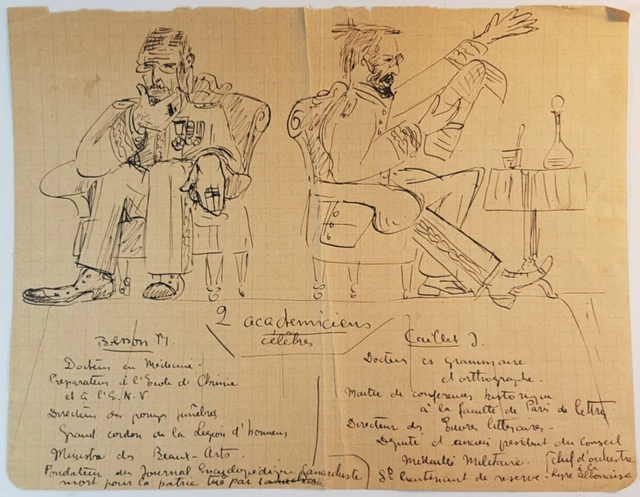 2 académiciens
célèbres
Besson M
Docteur en Médecine
Préparateur à l'Ecole de Chimie
et à l'E.N.V
Directeur des pompes funèbres
Grand cordon de la Légion d'honneur
Ministre des Beaux-Arts.
Fondateur du Journal Encyclopédique (anarchiste
mort pour la patrie tué par
Caillet J.
Docteur es Grammaire
et orthographe.
Maitre de conferences historique
à la faculté de Paris de lettres
Directeur des Euvres litteraires.
Député et ancien président du conseil
Médaillé Militaire.
St lieutenant de reserve.
(chef d'orchestre
Lyre